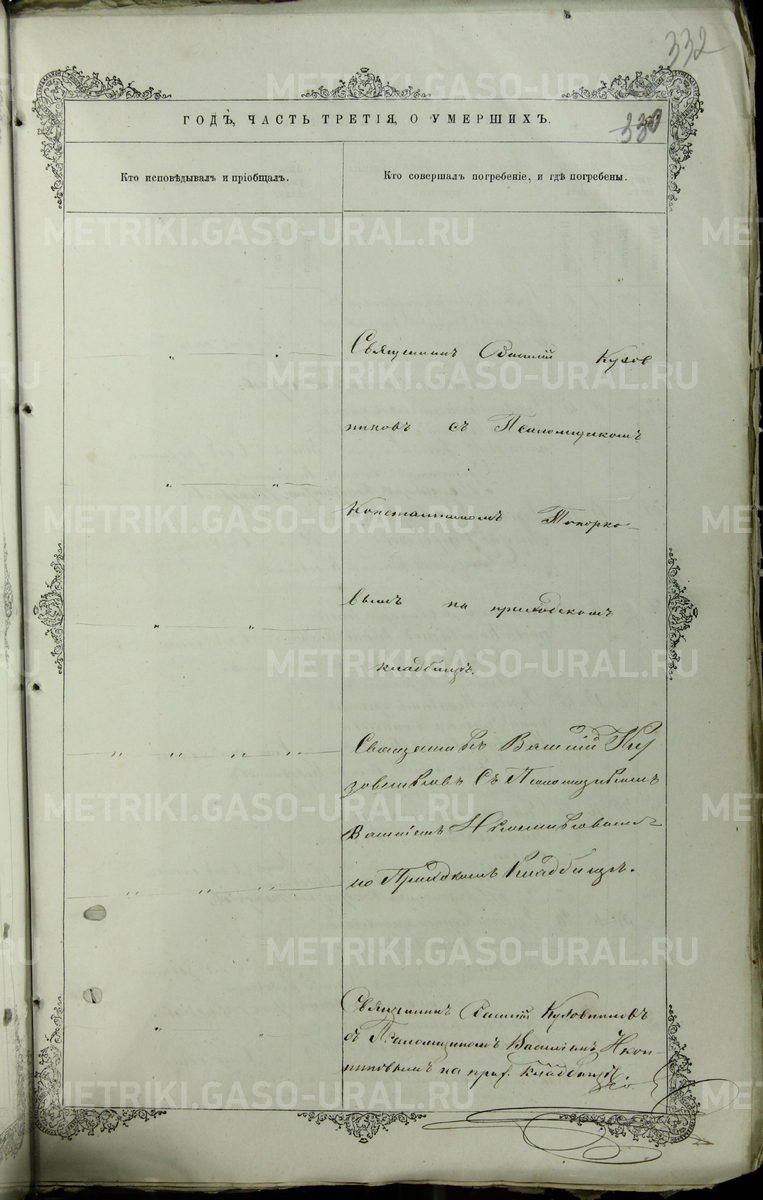 332
330
ГОДЪ, ЧАСТЬ ТРЕТІЯ, О УМЕРШИХЪ.
Кто исповѣдывалъ и пріобщалъ.
Кто совершалъ погребеніе, и гдѣ погребены.
METRIKI.GASO-URAL.RU
Священникъ Василій Кузов
никовъ съ Псаломщикомъ
Константиномъ Топорко-
вымъ на приходскомъ
кладбищѣ.
Священникъ Василій Ку
зовниковъ съ Псаломщикомъ
Василіемъ
на Приходскомъ Кладбищѣ.
Священникъ Василій Кузовниковъ
съ Псаломщикомъ Василіемъ
на прих. кладбищѣ